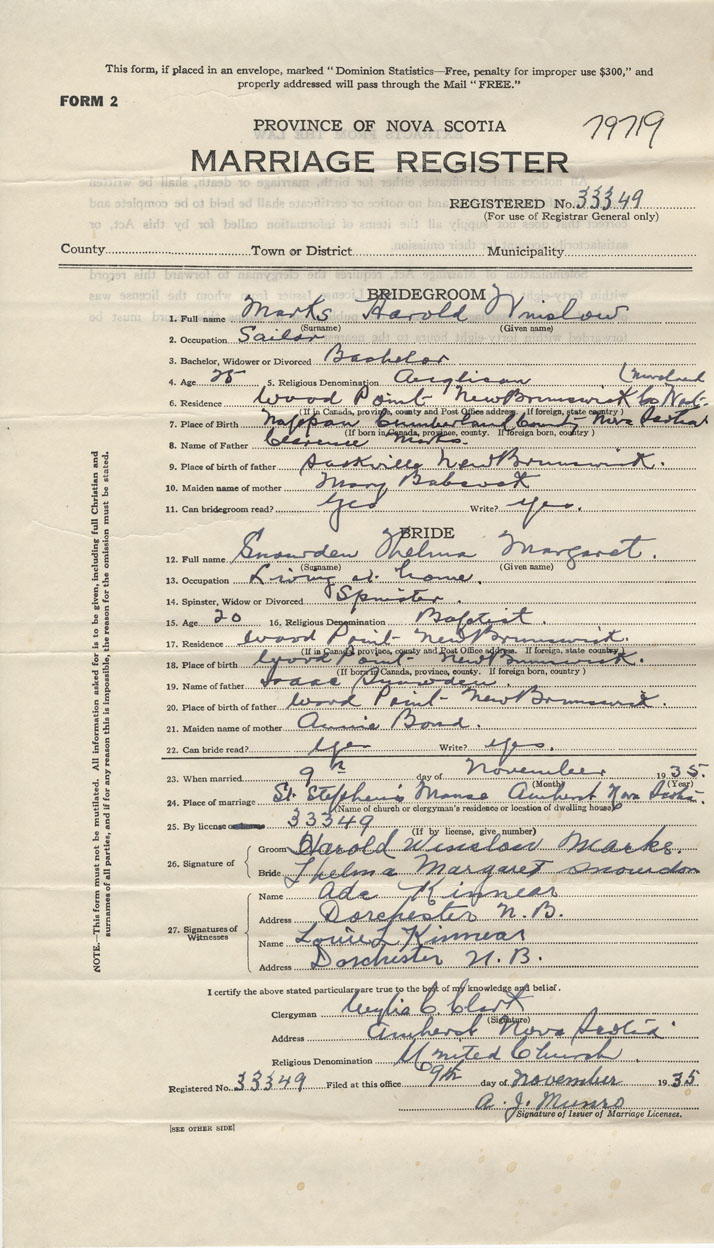 This form, if placed in an envelope, marked "Dominion Statistics—Free, penalty for improper use $300," and
properly addressed will pass through the Mail "FREE."
FORM 2
PROVINCE OF NOVA SCOTIA
79719
MARRIAGE REGISTER
REGISTERED No. 33349
(For use of Registrar General only)
County Town or District Municipality
BRIDEGROOM
1. Full name Marks Harold Winslow
(Surname) (Given name)
2. Occupation Sailor
3. Bachelor, Widower or Divorced Bachelor
4. Age 25 5. Religious Denomination Anglican
6. Residence Wood Point New Brunswick
(If in Canada, province, county and Post Office address. If foreign, state country)
7. Place of Birth Nappan Cumberland County Nova Scotia
(If born in Canada, province, county. If foreign born, country)
8. Name of Father Clarence Marks.
9. Place of birth of father Sackville New Brunswick.
10. Maiden name of mother Mary Babcock
11. Can bridegroom read? Yes Write? yes.
BRIDE
12. Full name Snowden Thelma Margaret.
(Surname) (Given name)
13. Occupation Living at home.
14. Spinster, Widow or Divorced Spinster.
15. Age 20 16. Religious Denomination Baptist.
17. Residence Wood Point New Brunswick.
(If in Canada, province, county and Post Office address. If foreign, state country)
18. Place of birth Wood Point New Brunswick.
(If born in Canada, province, county. If foreign born, country)
19. Name of father Isaac Snowden
20. Place of birth of father Wood Point New Brunswick.
21. Maiden name of mother Annie Bond.
22. Can bride read? Yes Write? yes.
23. When married 9th day of November 1935.
(Month) (Year)
24. Place of marriage St. Stephen's Manse Amherst Nova Scotia.
(Name of church or clergyman's residence or location of dwelling house)
25. By license 33349
(If by license, give number)
26. Signature of
Groom Harold Winslow Marks.
Bride Thelma Margaret Snowdon
27. Signatures of Witnesses
Name Ada Kinnear
Address Dorchester N.B.
Name Louise L Kinnear
Address Dorchester N.B.
I certify the above stated particulars are true to the best of my knowledge and belief.
Clergyman C. Clark
(Signature)
Address Amherst Nova Scotia
Religious Denomination United Church.
Registered No. 33349 Filed at this office 9th day of November 1935
A. J. Munro
Signature of Issuer of Marriage Licenses.
[SEE OTHER SIDE]
NOTE.—This form must not be mutilated. All information asked for is to be given, including full Christian and
surnames of all parties, and if for any reason this is impossible, the reason for the omission must be stated.